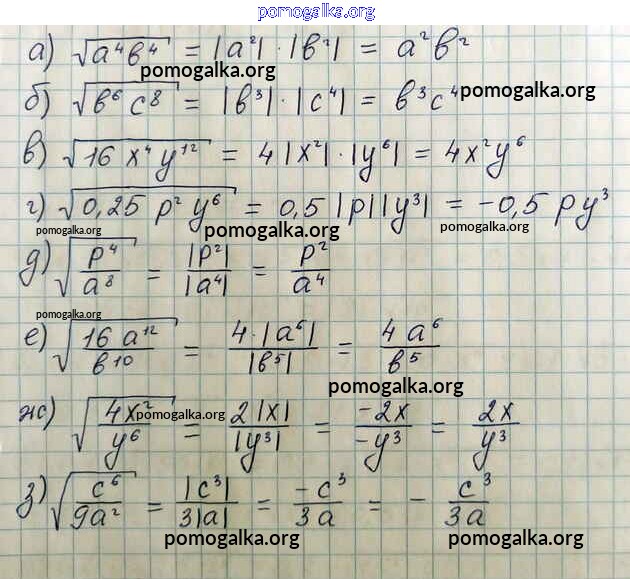 pomogalka.org
а) √a⁴b⁴ = |a²|·|b²| = a²b²
pomogalka.org
б) √b⁶c⁸ = |b³|·|c⁴| = b³c⁴
pomogalka.org
в) √16x⁴y¹² = 4|x²|·|y⁶| = 4x²y⁶
г) √0,25p²y⁶ = 0,5|p||y³| = -0,5py³
pomogalka.org
pomogalka.org
pomogalka.org
д) √(p⁴/a⁸) = |p²|/|a⁴| = p²/a⁴
pomogalka.org
е) √(16a¹²/b¹⁰) = 4·|a⁶|/|b⁵| = 4a⁶/b⁵
pomogalka.org
ж) √(4x²/y⁶) = 2|x|/|y³| = -2x/-y³ = 2x/y³
pomogalka.org
з) √(c⁶/9a²) = |c³|/3|a| = -c³/3a = - c³/3a
pomogalka.org
pomogalka.org